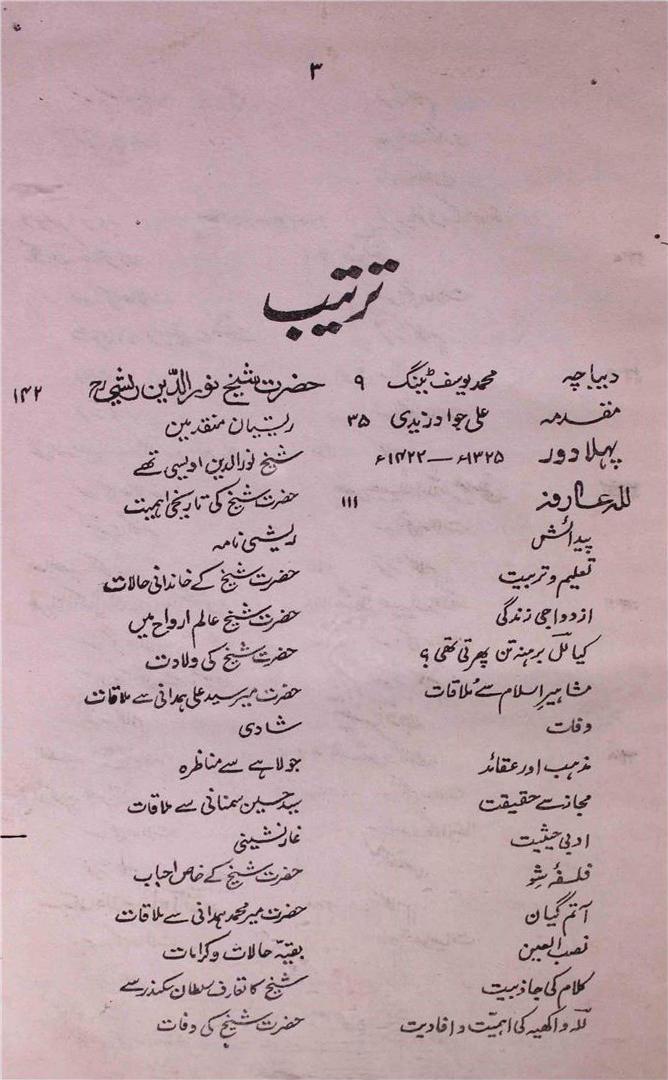 ۳
ترتیب
دیباچہ محمد یوسف ٹینگ ۹
مقدمہ علی جواد زیدی ۳۵
پہلا دور ۱۳۲۵ء — ۱۴۲۲ء
للہ عارفہ ۱۱۱
پیدائش
تعلیم و تربیت
ازدواجی زندگی
کیا للّ برہنہ تن پھرتی تھی؟
مشاہیرِ اسلام سے مُلاقات
وفات
مذہب اور عقائد
مجاز سے حقیقت
ادبی حیثیت
فلسفۂ شِو
آتم گیان
نصب العین
کلام کی جاذبیت
للّہ واکھیہ کی اہمیّت و افادیت
حضرت شیخ نور الدّین ریشیؒ ۱۴۲
ریشیان متقدمین
شیخ نور الدین اویسی تھے
حضرت شیخ کی تاریخی اہمیت
ریشی نامہ
حضرت شیخ کے خاندانی حالات
حضرت شیخ عالم ارواح میں
حضرت شیخ کی ولادت
حضرت میر سید علی ہمدانی سے ملاقات
شادی
جولاہے سے مناظرہ
سید حسین سمنانی سے ملاقات
غار نشینی
حضرت شیخ کے خاص احباب
حضرت میر محمد ہمدانی سے ملاقات
بقیہ حالات و کرامات
شیخ کا تعارف سلطان سکندر سے
حضرت شیخ کی وفات